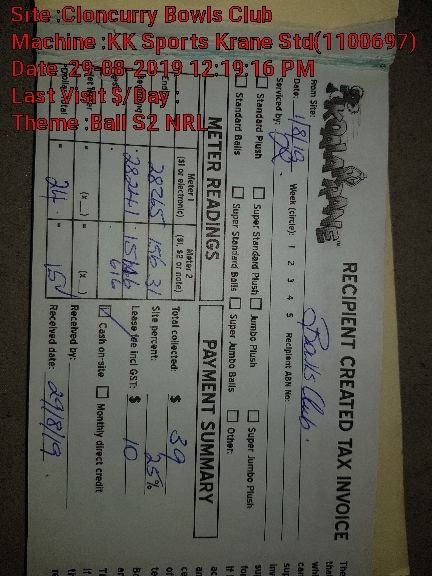 Site :Cloncurry Bowls Club
Machine :KK Sports Krane Std(1100697)
Date :29-08-2019 12:19:16 PM
Last Visit $/Day :
Theme :Ball S2 NRL
RECIPIENT CREATED TAX INVOICE
From Site: Bowls Club.
Date: 1/8/19 Week (circle): 1 2 3 4 5 Recipient ABN No:
Serviced by:
Standard Plush Super Standard Plush Jumbo Plush Super Jumbo Plush
Standard Balls Super Standard Balls Super Jumbo Balls Other:
METER READINGS
Meter 1 Meter 2
($1 or electronic) ($1, $2 or note)
28265 15631
28241
(x ) (x )
24 15
PAYMENT SUMMARY
Total collected: $ 39
Site percent: 25%
Lease fee incl GST: $ 10
Cash on-site Monthly direct credit
Received by:
Received date: 29/8/19